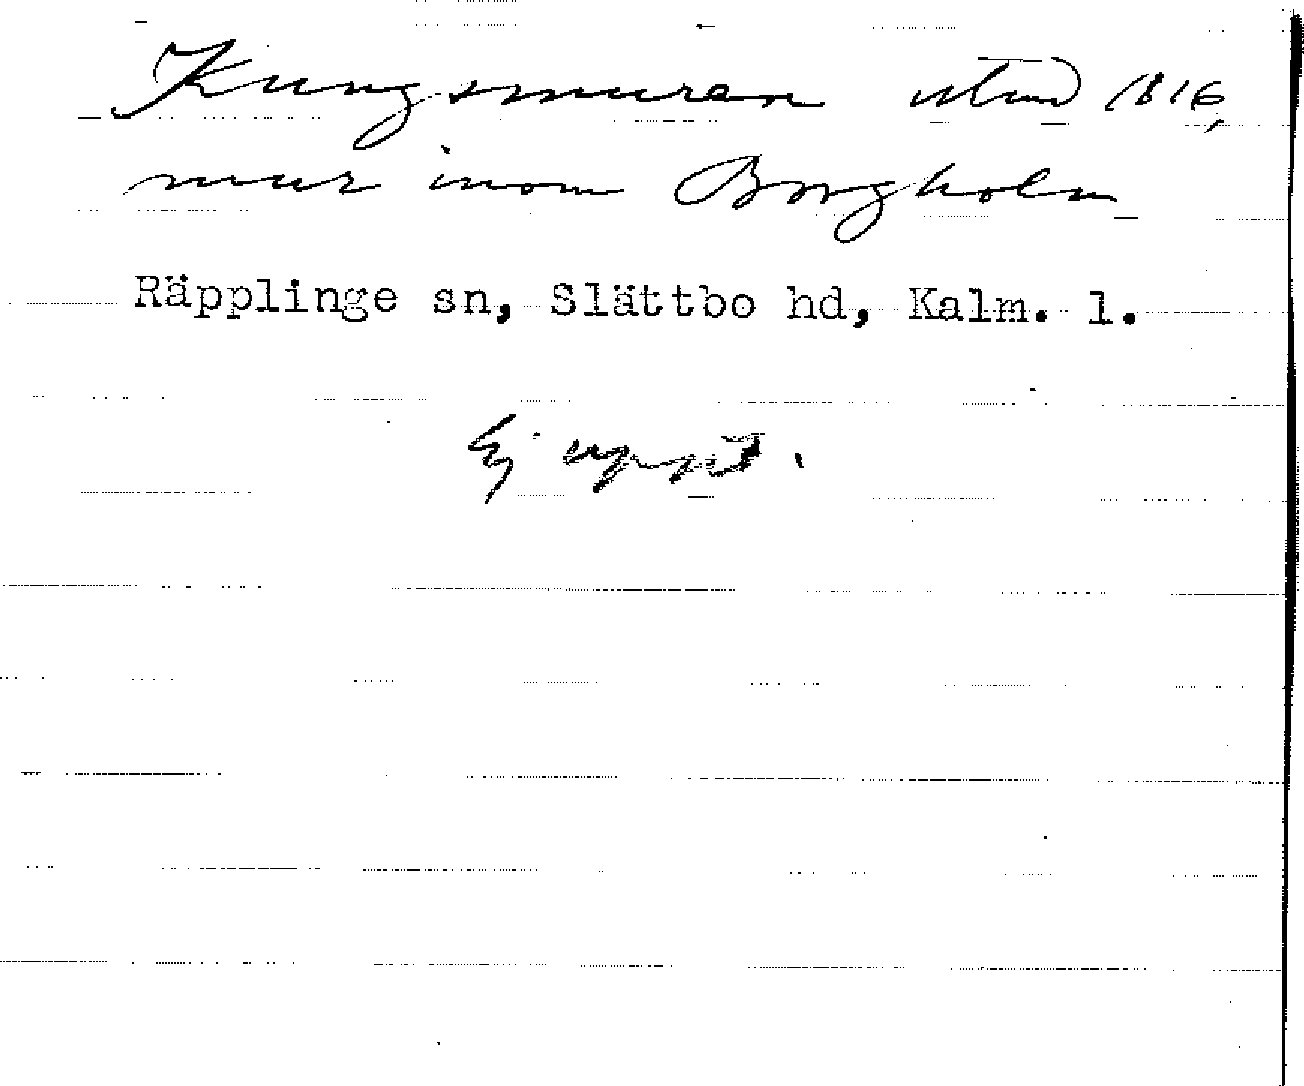 Kungsmuren utmd 1816,
mur inom Borgholm
Räpplinge sn, Slättbo hd, Kalm. l.
Ej uppt.